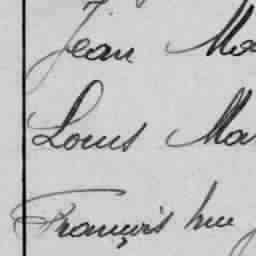 Jean Ma
Louis Ma
François